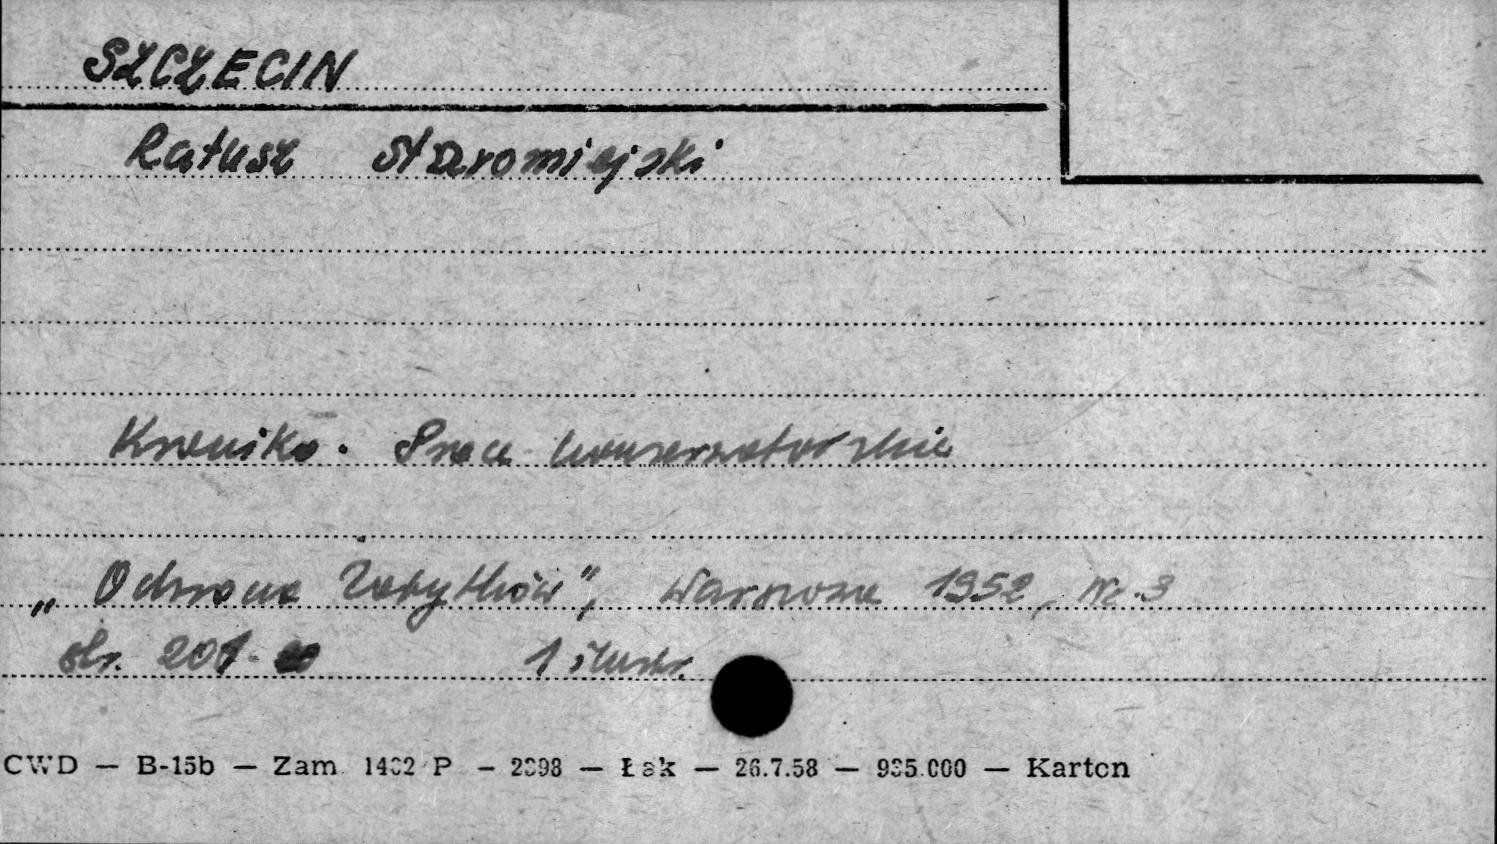 SZCZECIN
Ratusz staromiejski
Kronika. Prace konserwatorskie
„Ochrona Zabytków", Warszawa 1952, Nr. 3
str. 201-
1 ilustr.
CWD — B-15b — Zam. 1432 P — 2398 — Łak — 26.7.58 — 935.000 — Karton